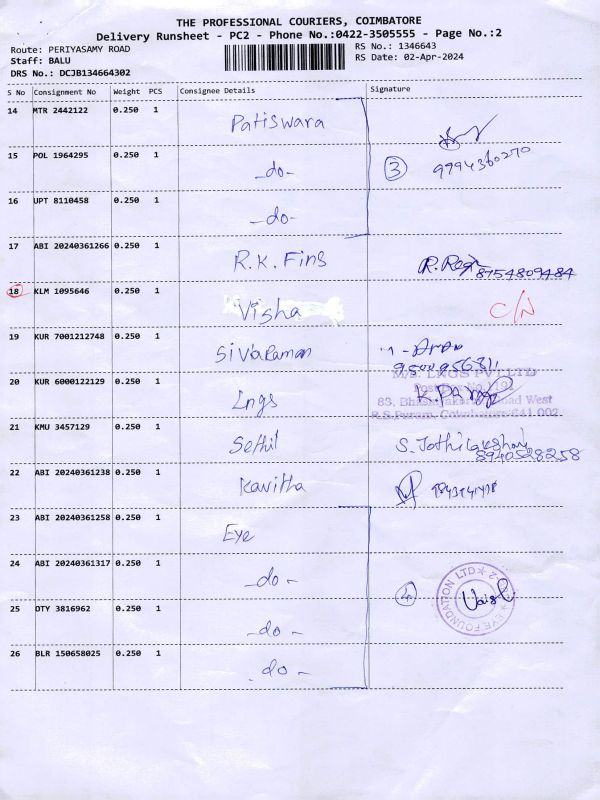 THE PROFESSIONAL COURIERS, COIMBATORE
Delivery Runsheet - PC2 - Phone No.:0422-3505555 - Page No.:2
Route: PERIYASAMY ROAD
RS No.: 1346643
Staff: BALU
RS Date: 02-Apr-2024
DRS No.: DCJB134664302
S No Consignment No Weight PCS Consignee Details Signature
14 MTR 2442122 0.250 1 Patiswara
15 POL 1964295 0.250 1 -do- 3 9994360270
16 UPT 8110458 0.250 1 -do-
17 ABI 20240361266 0.250 1 R.K. Fins 8754809484
18 KLM 1095646 0.250 1 Visha C/N
19 KUR 7001212748 0.250 1 Sivaraman
20 KUR 6000122129 0.250 1 Lngs
M/s. LNGS PVT LTD
R.S.Puram, Coimbatore-641 002
21 KMU 3457129 0.250 1 Sethil S. Jothilakshmi
8940528258
22 ABI 20240361238 0.250 1 Kavitha
23 ABI 20240361258 0.250 1 Eye
24 ABI 20240361317 0.250 1 -do-
25 OTY 3816962 0.250 1 -do- 4 EYE FOUNDATION LTD
26 BLR 150658025 0.250 1 -do-